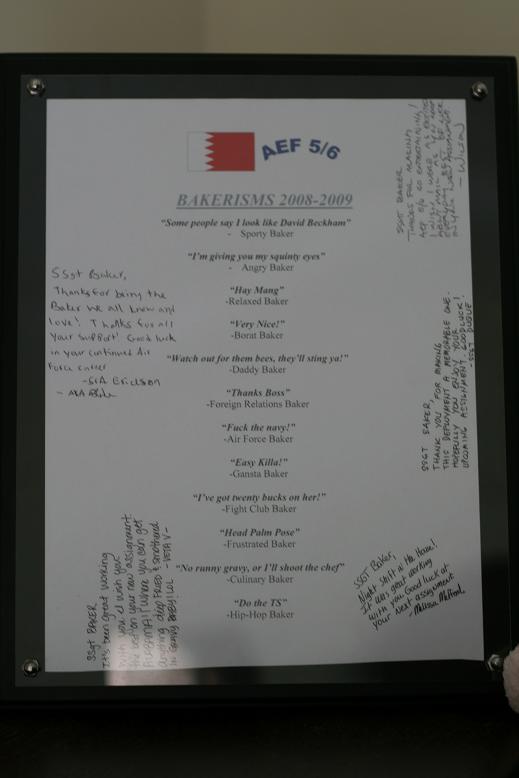 AEF 5/6
BAKERISMS 2008-2009
"Some people say I look like David Beckham"
- Sporty Baker
"I'm giving you my squinty eyes"
- Angry Baker
"Hay Mang"
-Relaxed Baker
"Very Nice!"
-Borat Baker
"Watch out for them bees, they'll sting ya!"
-Daddy Baker
"Thanks Boss"
-Foreign Relations Baker
"Fuck the navy!"
-Air Force Baker
"Easy Killa!"
-Gansta Baker
"I've got twenty bucks on her!"
-Fight Club Baker
"Head Palm Pose"
-Frustrated Baker
"No runny gravy, or I'll shoot the chef"
-Culinary Baker
"Do the TS"
-Hip-Hop Baker
SSgt Baker,
Thanks for being the
Baker we all know and
love! Thanks for all
your support! Good luck
in your continued Air
Force career
-SrA Erickson
SSgt BAKER
It's been great working
with you & I wish you
the best on your new assignment.
ALABAMA! Where you can get
anything deep FRIED & smothered
in GRAVY BABY! LOL
SSGT BAKER
THANKS FOR MAKING
AEF 5/6 SO ENTERTAINING!
I WISH I WERE AS EXCITED
- WILSON
SSGT BAKER,
THANK YOU FOR MAKING
THIS DEPLOYMENT A MEMORABLE ONE.
HOPEFULLY YOU ENJOY YOUR
UPCOMING ASSIGNMENT. GOOD LUCK!
-SSGT DUQUE
SSGT Baker,
Night Shift in the House!
It was great working
with you. Good luck at
your next assignment
-Melissa